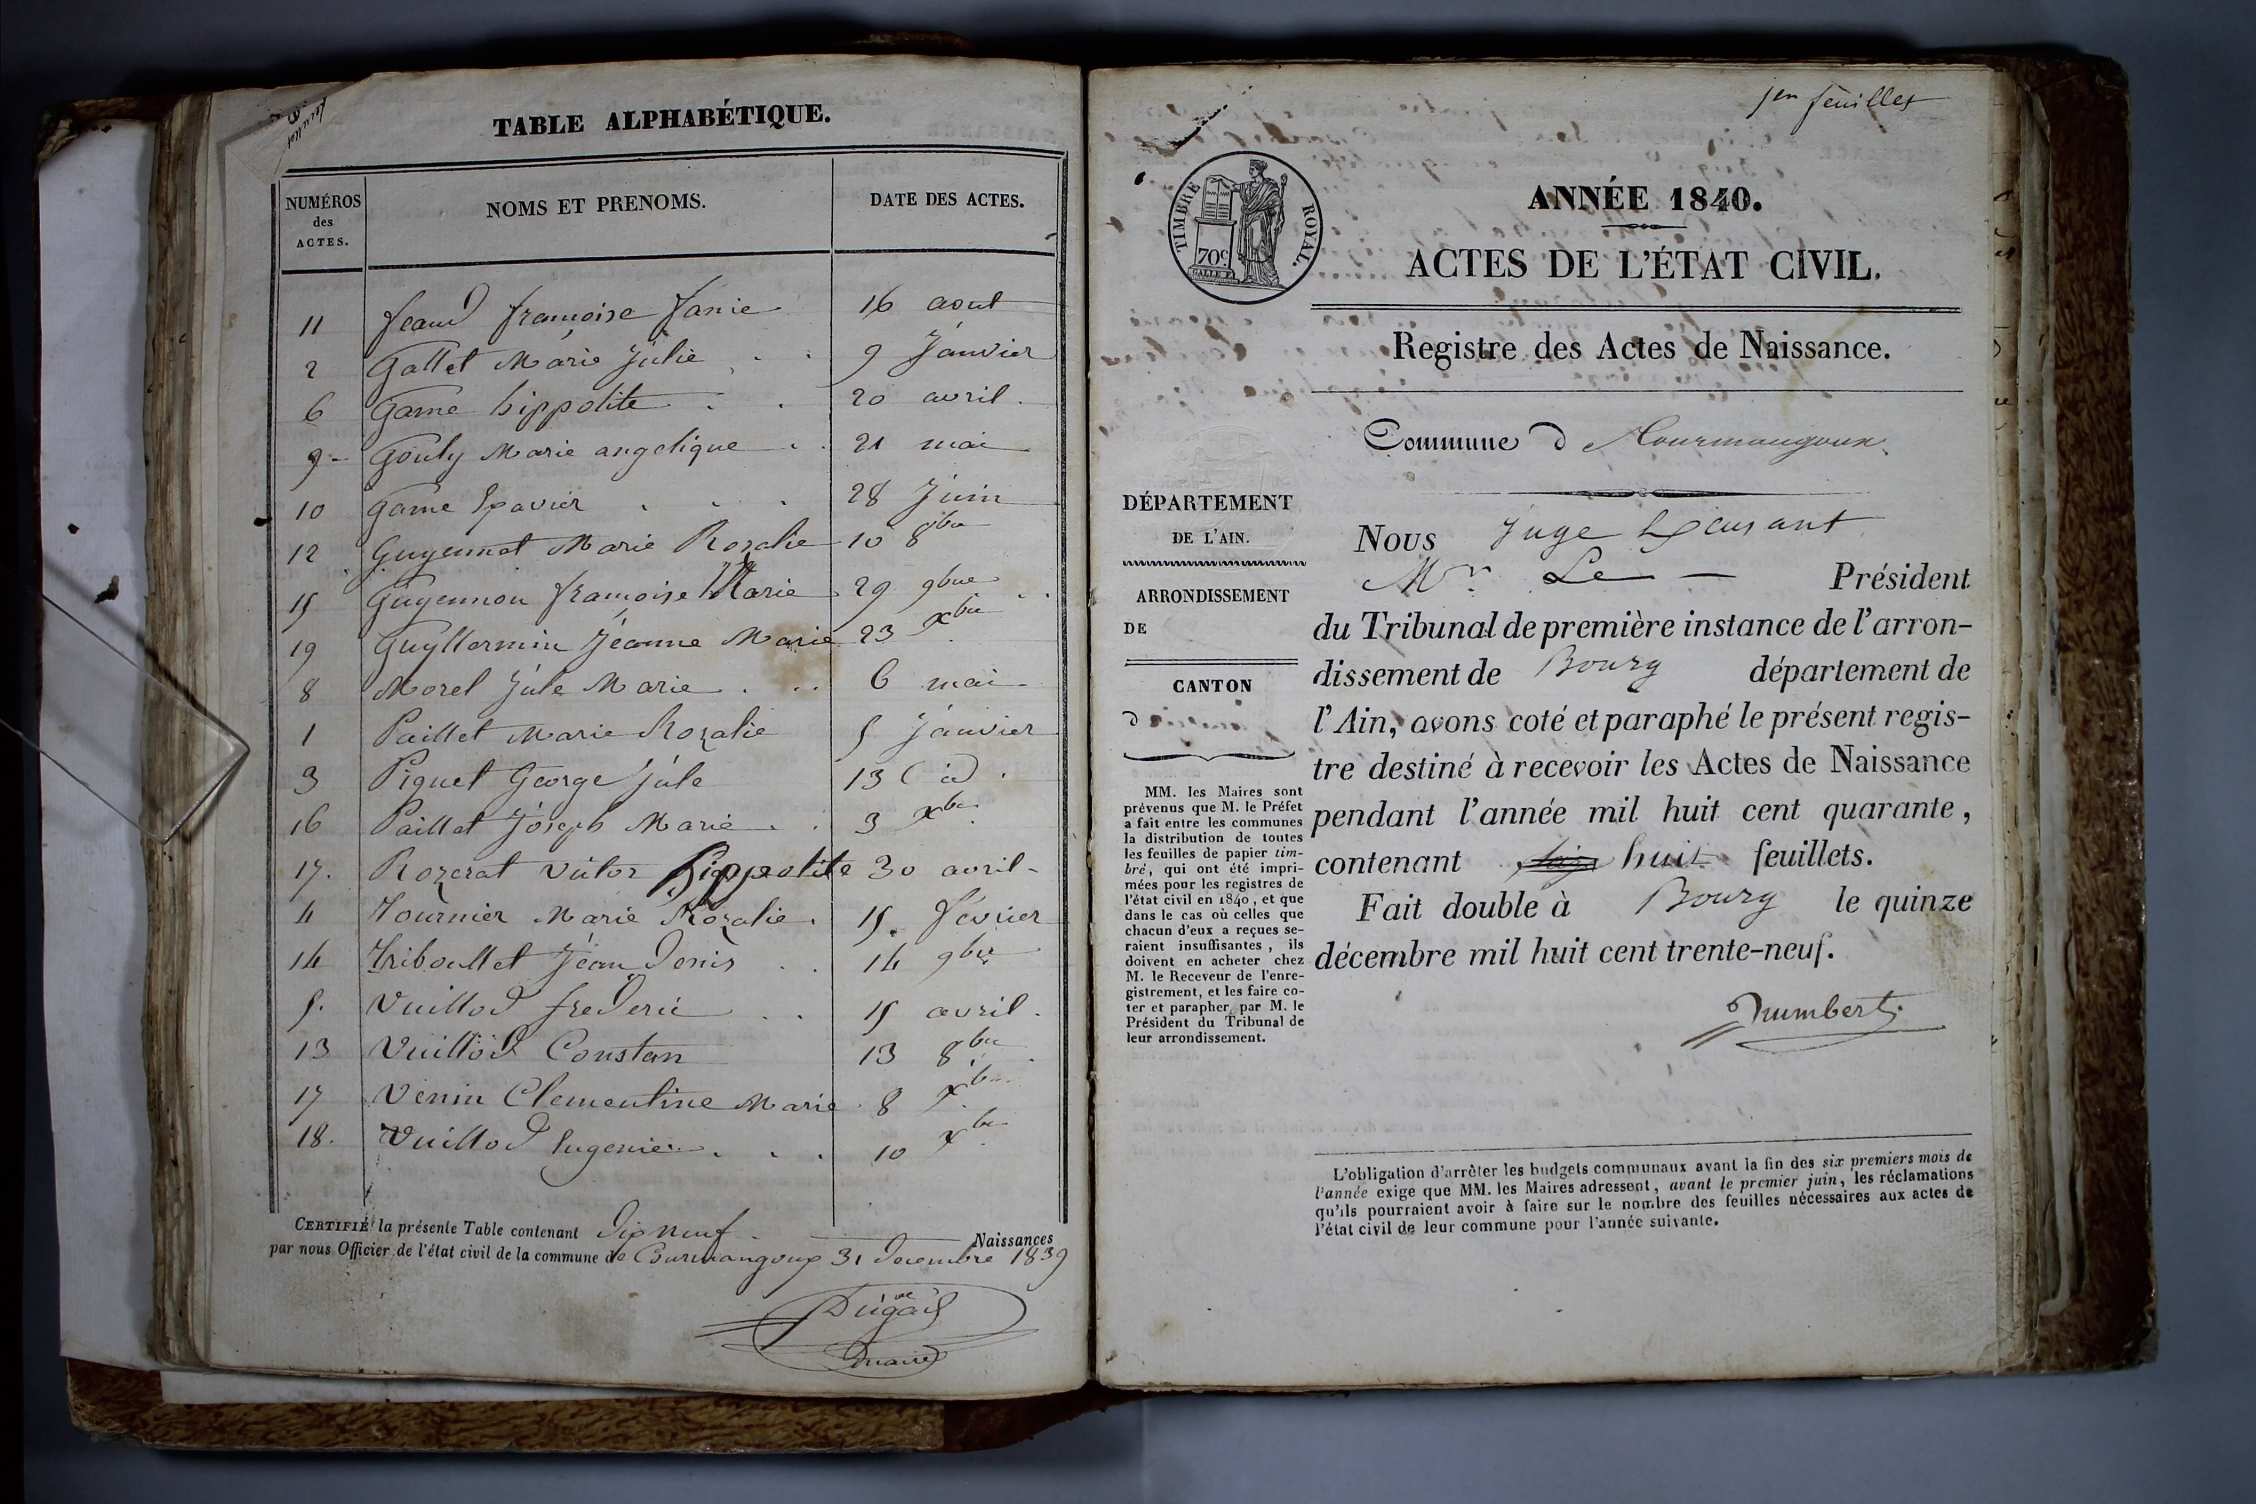 feuillet
TABLE ALPHABÉTIQUE.
NUMÉROS des ACTES. NOMS ET PRENOMS. DATE DES ACTES.
11 feaud françoise fanie 16 aout
2 Gallet Marie Julie 9 Janvier
6 Game hippolite 20 avril
9 Gouly Marie angelique 21 mai
10 Game Xavier 28 Juin
12 Guyennet Marie Rozalie 10 8bre
15 Guyennon françoise Marie 29 9bre
19 Guyllermin Jéanne Marie 23 Xbre
8 Morel Jule Marie 6 mai
1 Paillet Marie Rozalie 5 Janvier
3 Piquet George Jule 13 (id)
16 Paillet Joseph Marie 3 Xbre
17. Rozerat Victor hippolite 30 avril
4 Tournier Marie Rozalie 15 février
14 Triboullet Jéan Denis 14 9bre
5. Vuillod frederic 15 avril
13 Vuillod Constan 13 8bre
17 Venin Clementine Marie 8 Xbre
18. Vuillod Eugenie 10 Xbre
CERTIFIÉ la présente Table contenant Dix neuf Naissances
par nous Officier de l'état civil de la commune de Courmangoux 31 Decembre 1839
maire
1er feuillet
TIMBRE ROYAL.
70c
ANNÉE 1840.
ACTES DE L'ÉTAT CIVIL.
Registre des Actes de Naissance.
Commune d Courmangoux
DÉPARTEMENT
DE L'AIN.
ARRONDISSEMENT
DE
CANTON
d
MM. les Maires sont
prévenus que M. le Préfet
a fait entre les communes
la distribution de toutes
les feuilles de papier tim-
bré, qui ont été impri-
mées pour les registres de
l'état civil en 1840, et que
dans le cas où celles que
chacun d'eux a reçues se-
raient insuffisantes, ils
doivent en acheter chez
M. le Receveur de l'enre-
gistrement, et les faire co-
ter et parapher par M. le
Président du Tribunal de
leur arrondissement.
Nous Juge
Mr Le Président
du Tribunal de première instance de l'arron-
dissement de Bourg département de
l'Ain, avons coté et paraphé le présent regis-
tre destiné à recevoir les Actes de Naissance
pendant l'année mil huit cent quarante,
contenant huit feuillets.
Fait double à Bourg le quinze
décembre mil huit cent trente-neuf.
L'obligation d'arrêter les budgets communaux avant la fin des six premiers mois de
l'année exige que MM. les Maires adressent, avant le premier juin, les réclamations
qu'ils pourraient avoir à faire sur le nombre des feuilles nécessaires aux actes de
l'état civil de leur commune pour l'année suivante.